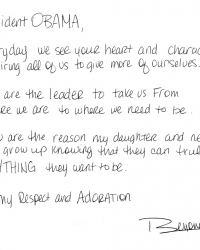 ident OBAMA,
ryday we see your heart and charac
iring all of us to give more of ourselves.
are the leader to take us From
ee we are to where we need to be.
u are the reason my daughter and ne
grow up knowing that they can trul
YTHING they want to be.
my Respect and Adoration